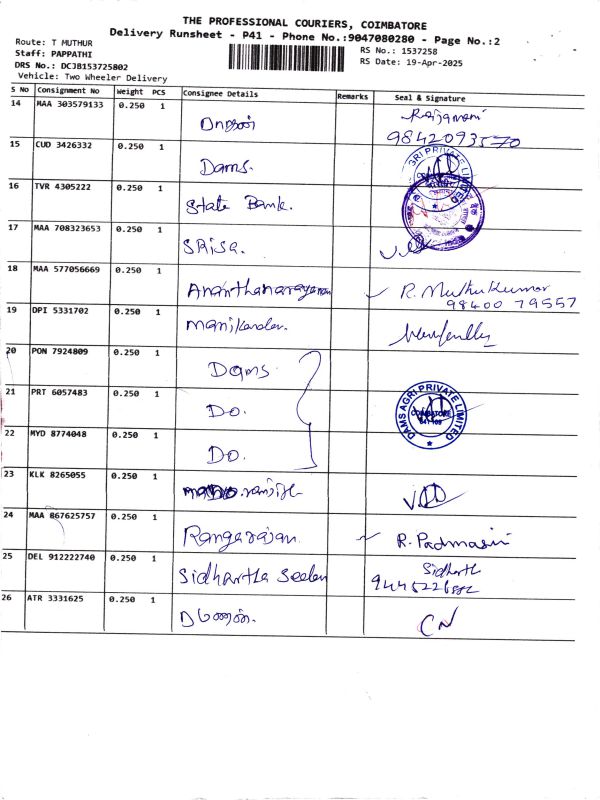 THE PROFESSIONAL COURIERS, COIMBATORE
Delivery Runsheet - P41 - Phone No.:9047080280 - Page No.:2
Route: T MUTHUR
Staff: PAPPATHI
DRS No.: DCJB153725802
Vehicle: Two Wheeler Delivery
RS No.: 1537258
RS Date: 19-Apr-2025
S No Consignment No Weight PCS Consignee Details Remarks Seal & Signature
14 MAA 303579133 0.250 1 Rajamani
9842093570
15 CUD 3426332 0.250 1 Dams.
16 TVR 4305222 0.250 1 State Bank.
17 MAA 708323653 0.250 1 SRisa.
18 MAA 577056669 0.250 1 Ananthanarayanan R. Muthukumar
98400 79557
19 DPI 5331702 0.250 1 manikandan.
20 PON 7924809 0.250 1 Dams
21 PRT 6057483 0.250 1 Do.
DAMS AGRI PRIVATE LIMITED
COIMBATORE
22 MYD 8774048 0.250 1 Do.
23 KLK 8265055 0.250 1
24 MAA 867625757 0.250 1 Rangarajan R. Padmasini
25 DEL 912222740 0.250 1 Sidhartha Seelan Sidharth
26 ATR 3331625 0.250 1 CN